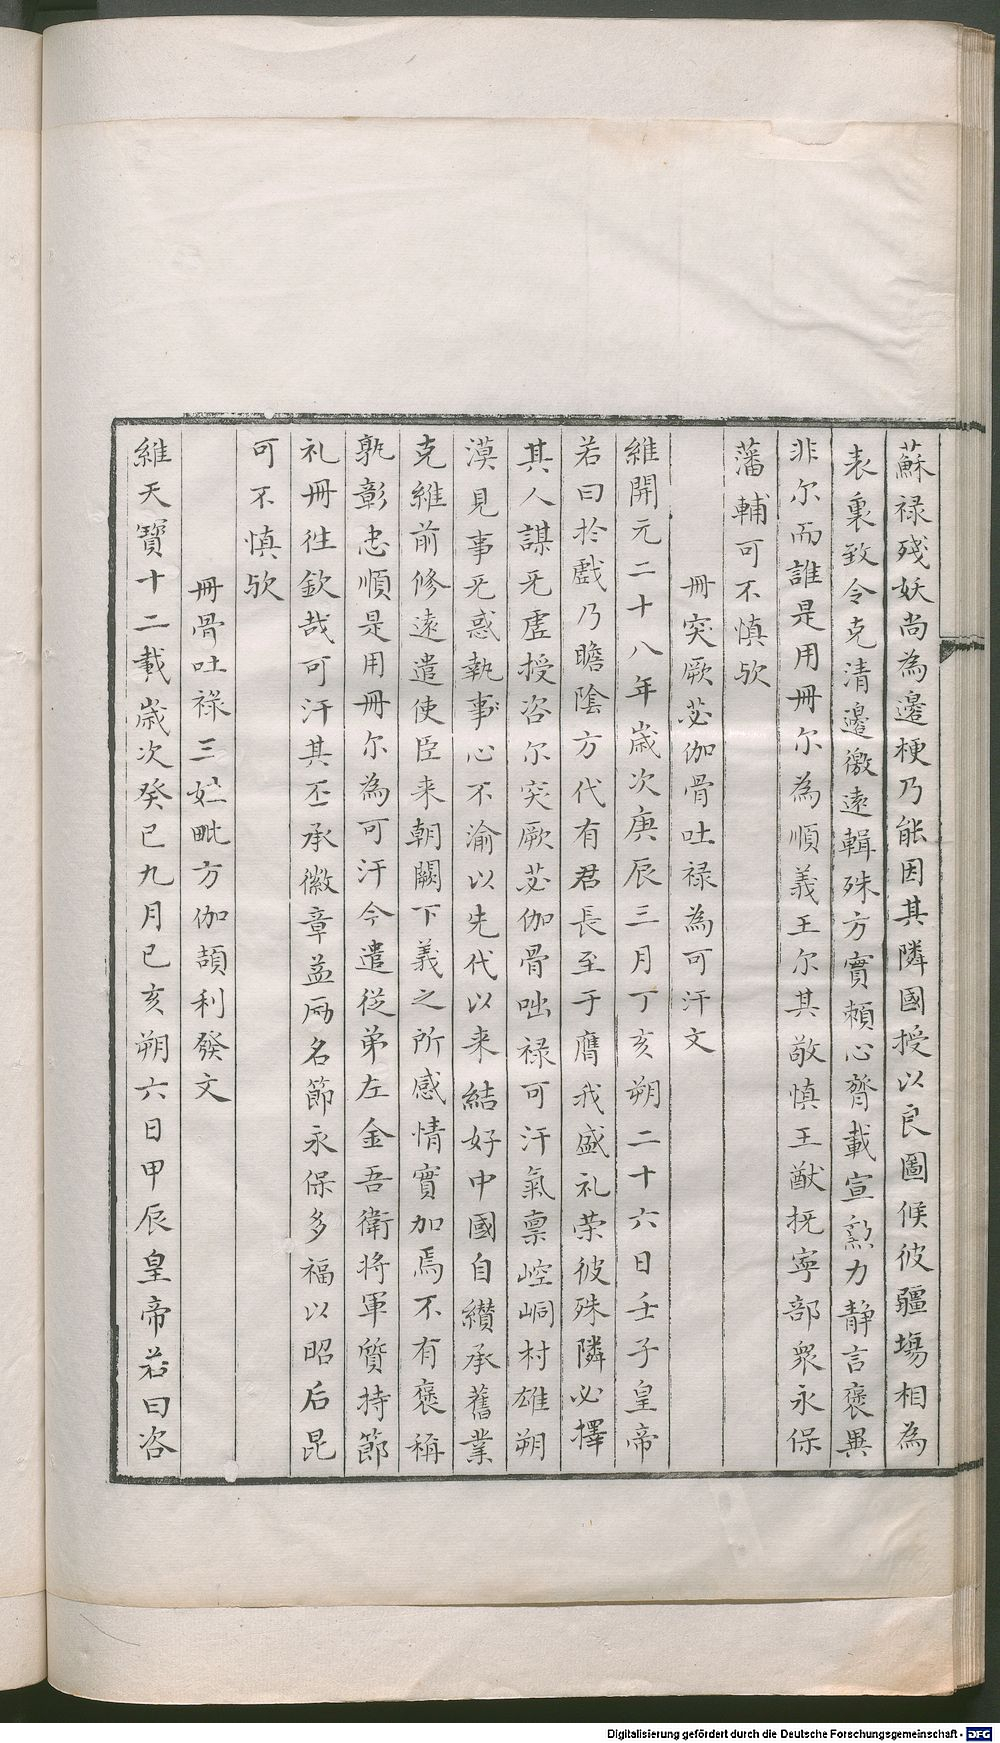 蘇禄残妖尚為邊梗乃能因其隣國授以良圖候彼疆埸相為
表裏致令克清邊徼遠輯殊方實頼心膂載宣勲力静言褒異
非尔而誰是用冊尔為順義王尔其敬慎王猷抚寜部衆永保
藩輔可不慎欤
冊突厥苾伽骨吐禄為可汗文
維開元二十八年歳次庚辰三月丁亥朔二十六日壬子皇帝
若曰扵戲乃瞻陰方代有君長至于膺我盛礼荣彼殊隣必擇
其人謀旡虚授咨尔突厥苾伽骨咄禄可汗氣禀崆峒村雄朔
漠見事旡惑執事心不渝以先代以来結好中國自纉承舊業
克維前修遠遣使臣来朝闕下義之所感情實加焉不有褒稱
孰彰忠順是用冊尔為可汗今遣従弟左金吾衛将軍質持節
礼冊徃欽哉可汗其丕承徽章益厉名節永保多福以昭后昆
可不慎欤
冊骨吐禄三妣毗方伽頡利發文
維天寳十二載歳次癸巳九月已亥朔六日甲辰皇帝若曰咨
Digitalisierung gefördert durch die Deutsche Forschungsgemeinschaft - DFG